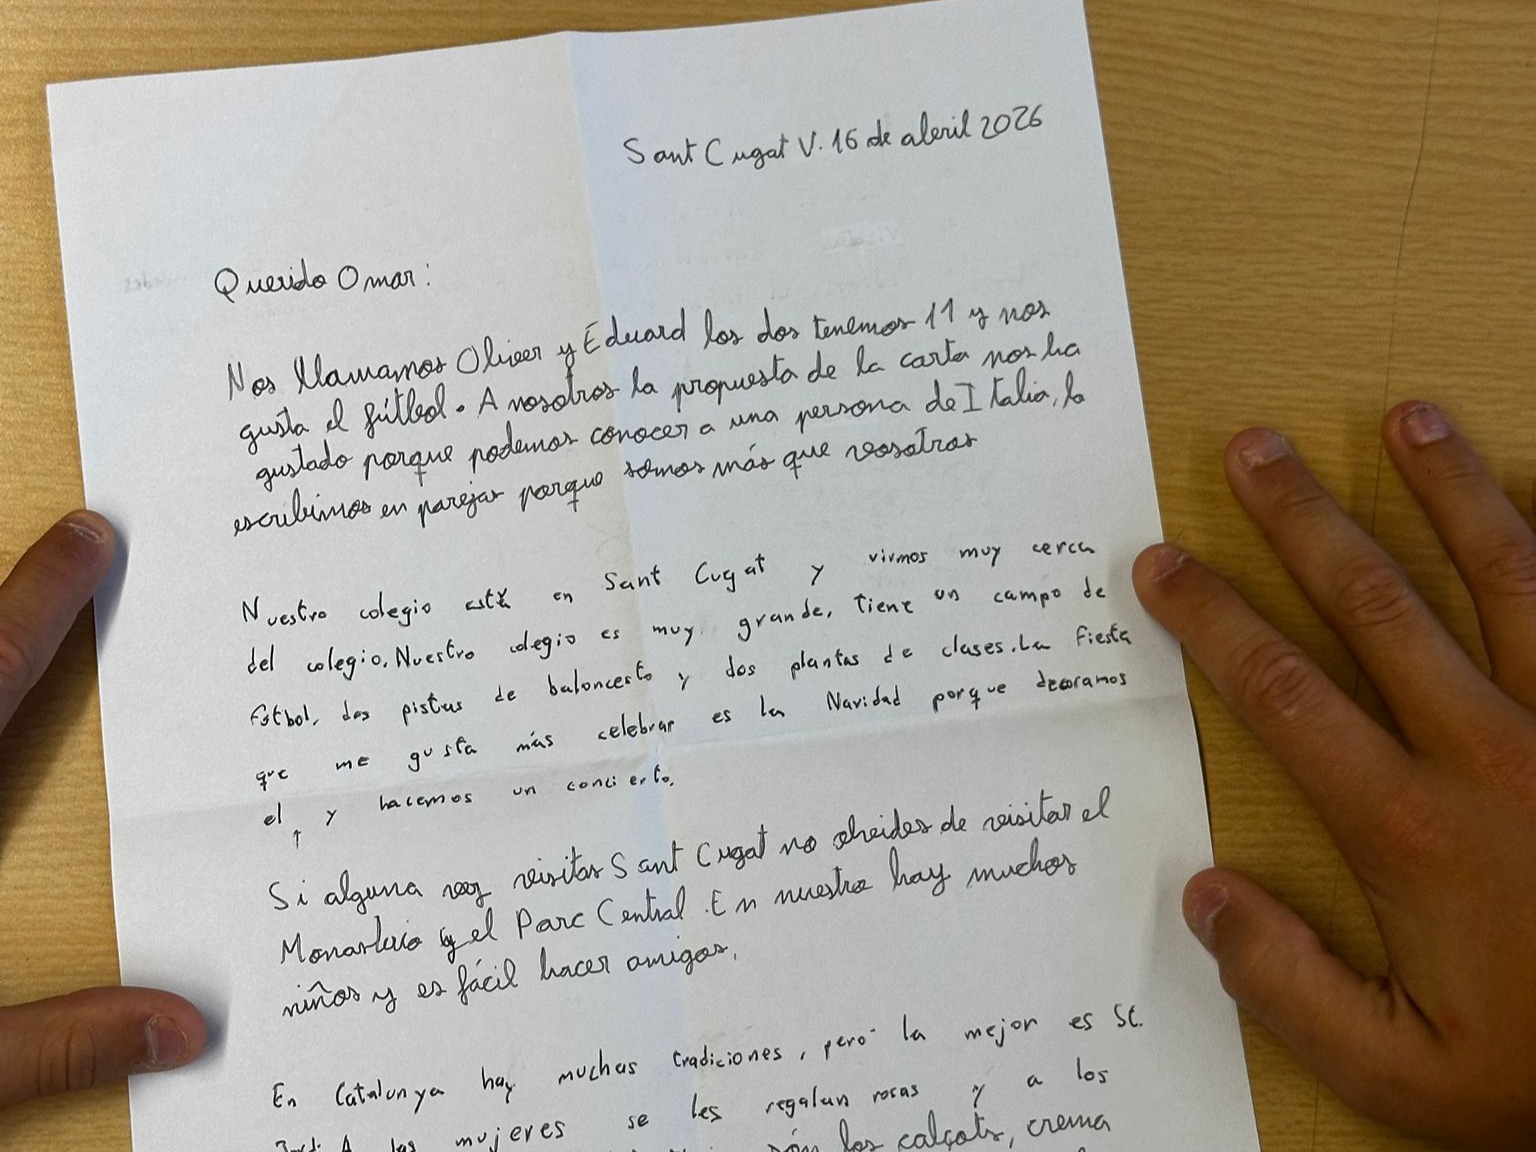 Sant Cugat V. 16 de abril 2026
Querido Omar:
Nos llamamos Oliver y Eduard los dos tenemos 11 y nos
gusta el fútbol. A nosotros la propuesta de la carta nos ha
gustado porque podemos conocer a una persona de Italia, lo
escribimos en parejas porque somos más que vosotros
Nuestro colegio está en Sant Cugat y vivmos muy cerca
del colegio. Nuestro colegio es muy grande, tiene un campo de
fútbol, dos pistas de baloncesto y dos plantas de clases. La fiesta
que me gusta más celebrar es la Navidad porque decoramos
el ↑ y hacemos un concierto.
Si alguna vez visitas Sant Cugat no olveides de visitar el
Monasterio y el Parc Central. En nuestro hay muchos
niños y es fácil hacer amigos.
En Catalunya hay muchas tradiciones, pero la mejor es St.
Jordi A las mujeres se les regalan rosas y a los
són los calçots, crema